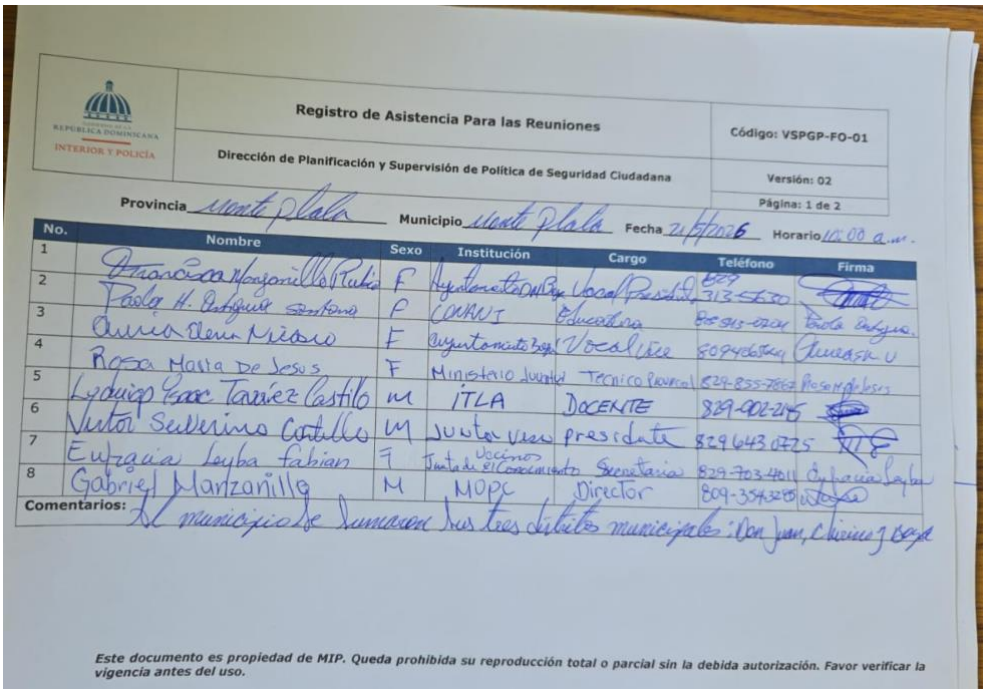 GOBIERNO DE LA
REPÚBLICA DOMINICANA
INTERIOR Y POLICÍA
Registro de Asistencia Para las Reuniones
Dirección de Planificación y Supervisión de Política de Seguridad Ciudadana
Código: VSPGP-FO-01
Versión: 02
Página: 1 de 2
Provincia Monte Plata Municipio Monte Plata Fecha 21/5/2026 Horario 10:00 a.m.
No. Nombre Sexo Institución Cargo Teléfono Firma
1 Francisca Manzanillo Rubio F Ayuntamiento Vocal 829 313-5630
2 Paola H. Santana F CONANI Educadora
3 F Ayuntamiento Vocal
4 Rosa Maria De Jesus F Ministerio Juventud Tecnico Provincial 829-855-7862
5 Isaac Tavárez Castillo M ITLA DOCENTE 829-902-2115
6 Victor Severino Castillo M Junta presidente 829 643 0725
7 Eufracia Leyba fabian F Junta de Vecinos El Conocimiento Secretaria 829-703-4011 Eufracia Leyba
8 Gabriel Manzanillo M MOPC Director
Comentarios: Al municipio se sumaron sus tres distritos municipales: Don Juan, Chirino y Boyá
Este documento es propiedad de MIP. Queda prohibida su reproducción total o parcial sin la debida autorización. Favor verificar la
vigencia antes del uso.